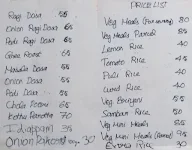 PRICE LIST
Ragi Dosa 55
Onion Ragi Dosa 65
Podi Ragi Dosa 65
Ghee Roast 65
Masala Dosa 55
Onion Dosa 55
Podi Dosa 55
Chola Poori 65
Kothu Parrotta 70
Idiappam 35
Onion 30
Veg Meals 80
Veg Meals Parcel 85
Lemon Rice 40
Tomato Rice 45
Puli Rice 40
Curd Rice 40
Veg Biriyani 55
Sambar Rice 50
Veg Mini Meals 85
Veg Mini Meals 95
Extra Rice 30